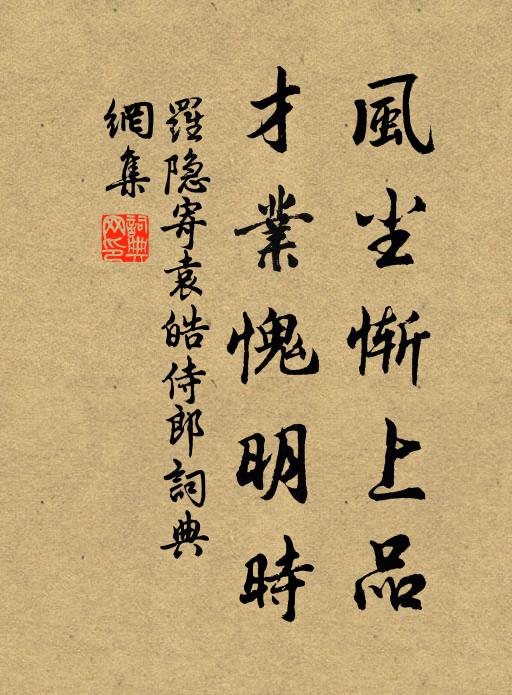 風尘惭上品
才業愧明時
羅隐寄袁皓侍郎詞典
網集
詞典
网印